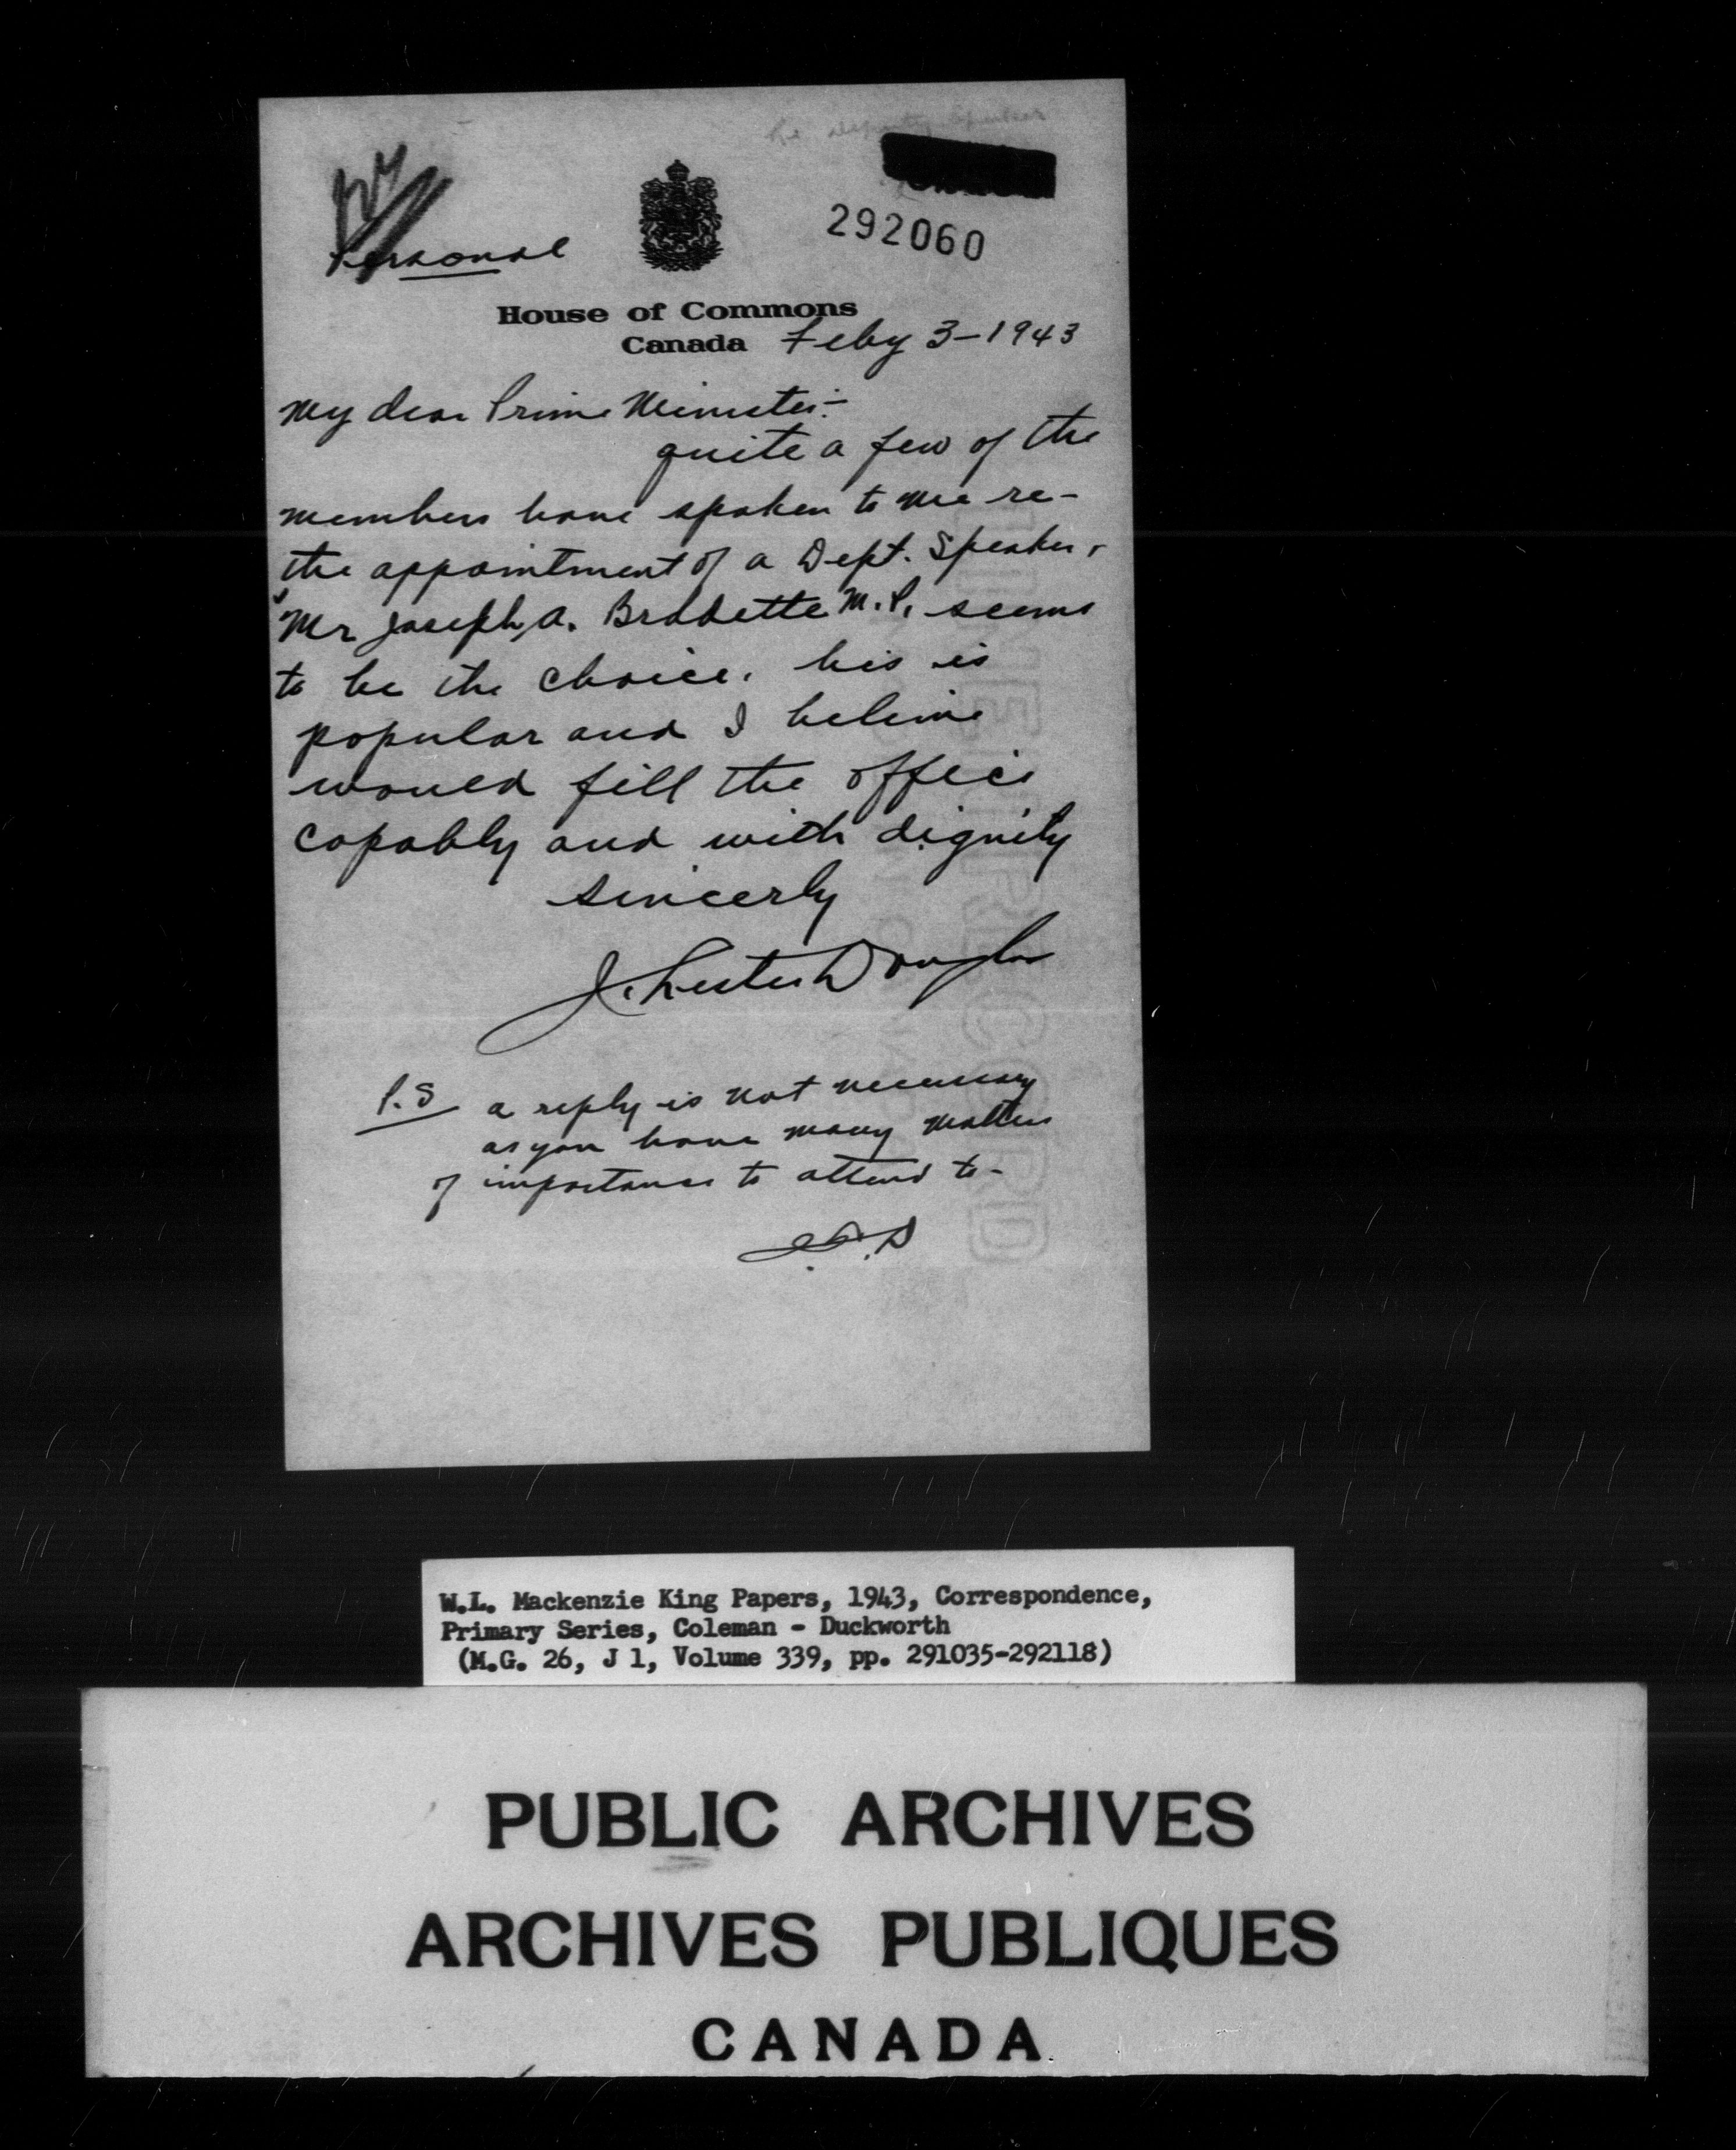 re deputy speaker
292060
Personal
House of Commons
Canada Feby 3-1943
My dear Prime Minister:-
quite a few of the
members have spoken to me re-
the appointment of a Dept. Speaker,
Mr Joseph A. Bradette M.P. seems
to be the choice. his is
popular and I believe
would fill the office
capably and with dignity
sincerly
J. Lester Douglas
P.S a reply is not necessary
as you have many matters
of importance to attend to-
J.L.D
W.L. Mackenzie King Papers, 1943, Correspondence,
Primary Series, Coleman - Duckworth
(M.G. 26, J 1, Volume 339, pp. 291035-292118)
PUBLIC ARCHIVES
ARCHIVES PUBLIQUES
CANADA